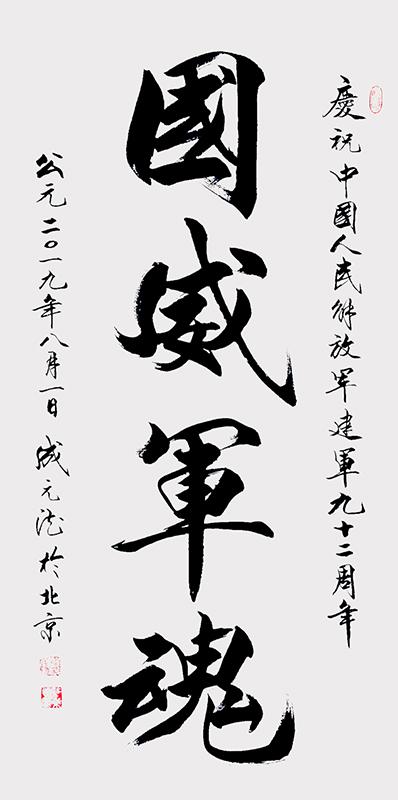 慶祝中國人民解放军建軍九十二周年
國威軍魂
公元二〇一九年八月一日 成元 於北京